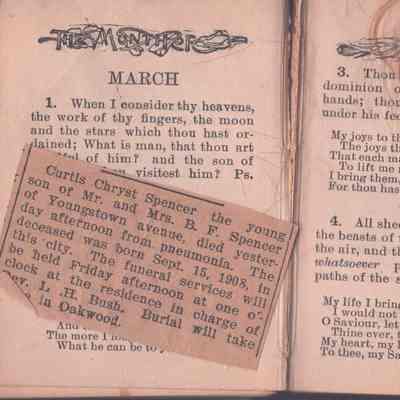 THE MONTH OF
MARCH
1. When I consider thy heavens,
the work of thy fingers, the moon
and the stars which thou hast or-
dained; What is man, that thou art
of him? and the son of
visitest him? Ps.
Curtis Chryst Spencer the young
son of Mr. and Mrs. B. F. Spencer
of Youngstown avenue, died yester-
day afternoon from pneumonia. The
deceased was born Sept. 15, 1908, in
this city. The funeral services will
be held Friday afternoon at one o'-
clock at the residence in charge of
Rev. L. H. Bush. Burial will take
in Oakwood.
And
The more I
What he can be to
3. Thou
dominion o
hands; thou
under his fee
My joys to th
The joys th
That each ma
To lift me n
I bring them,
For thou has
4. All shee
the beasts of
the air, and th
whatsoever p
paths of the s
My life I brin
I would not
O Saviour, let
Thine ever, t
My heart, my l
To thee, my Sa